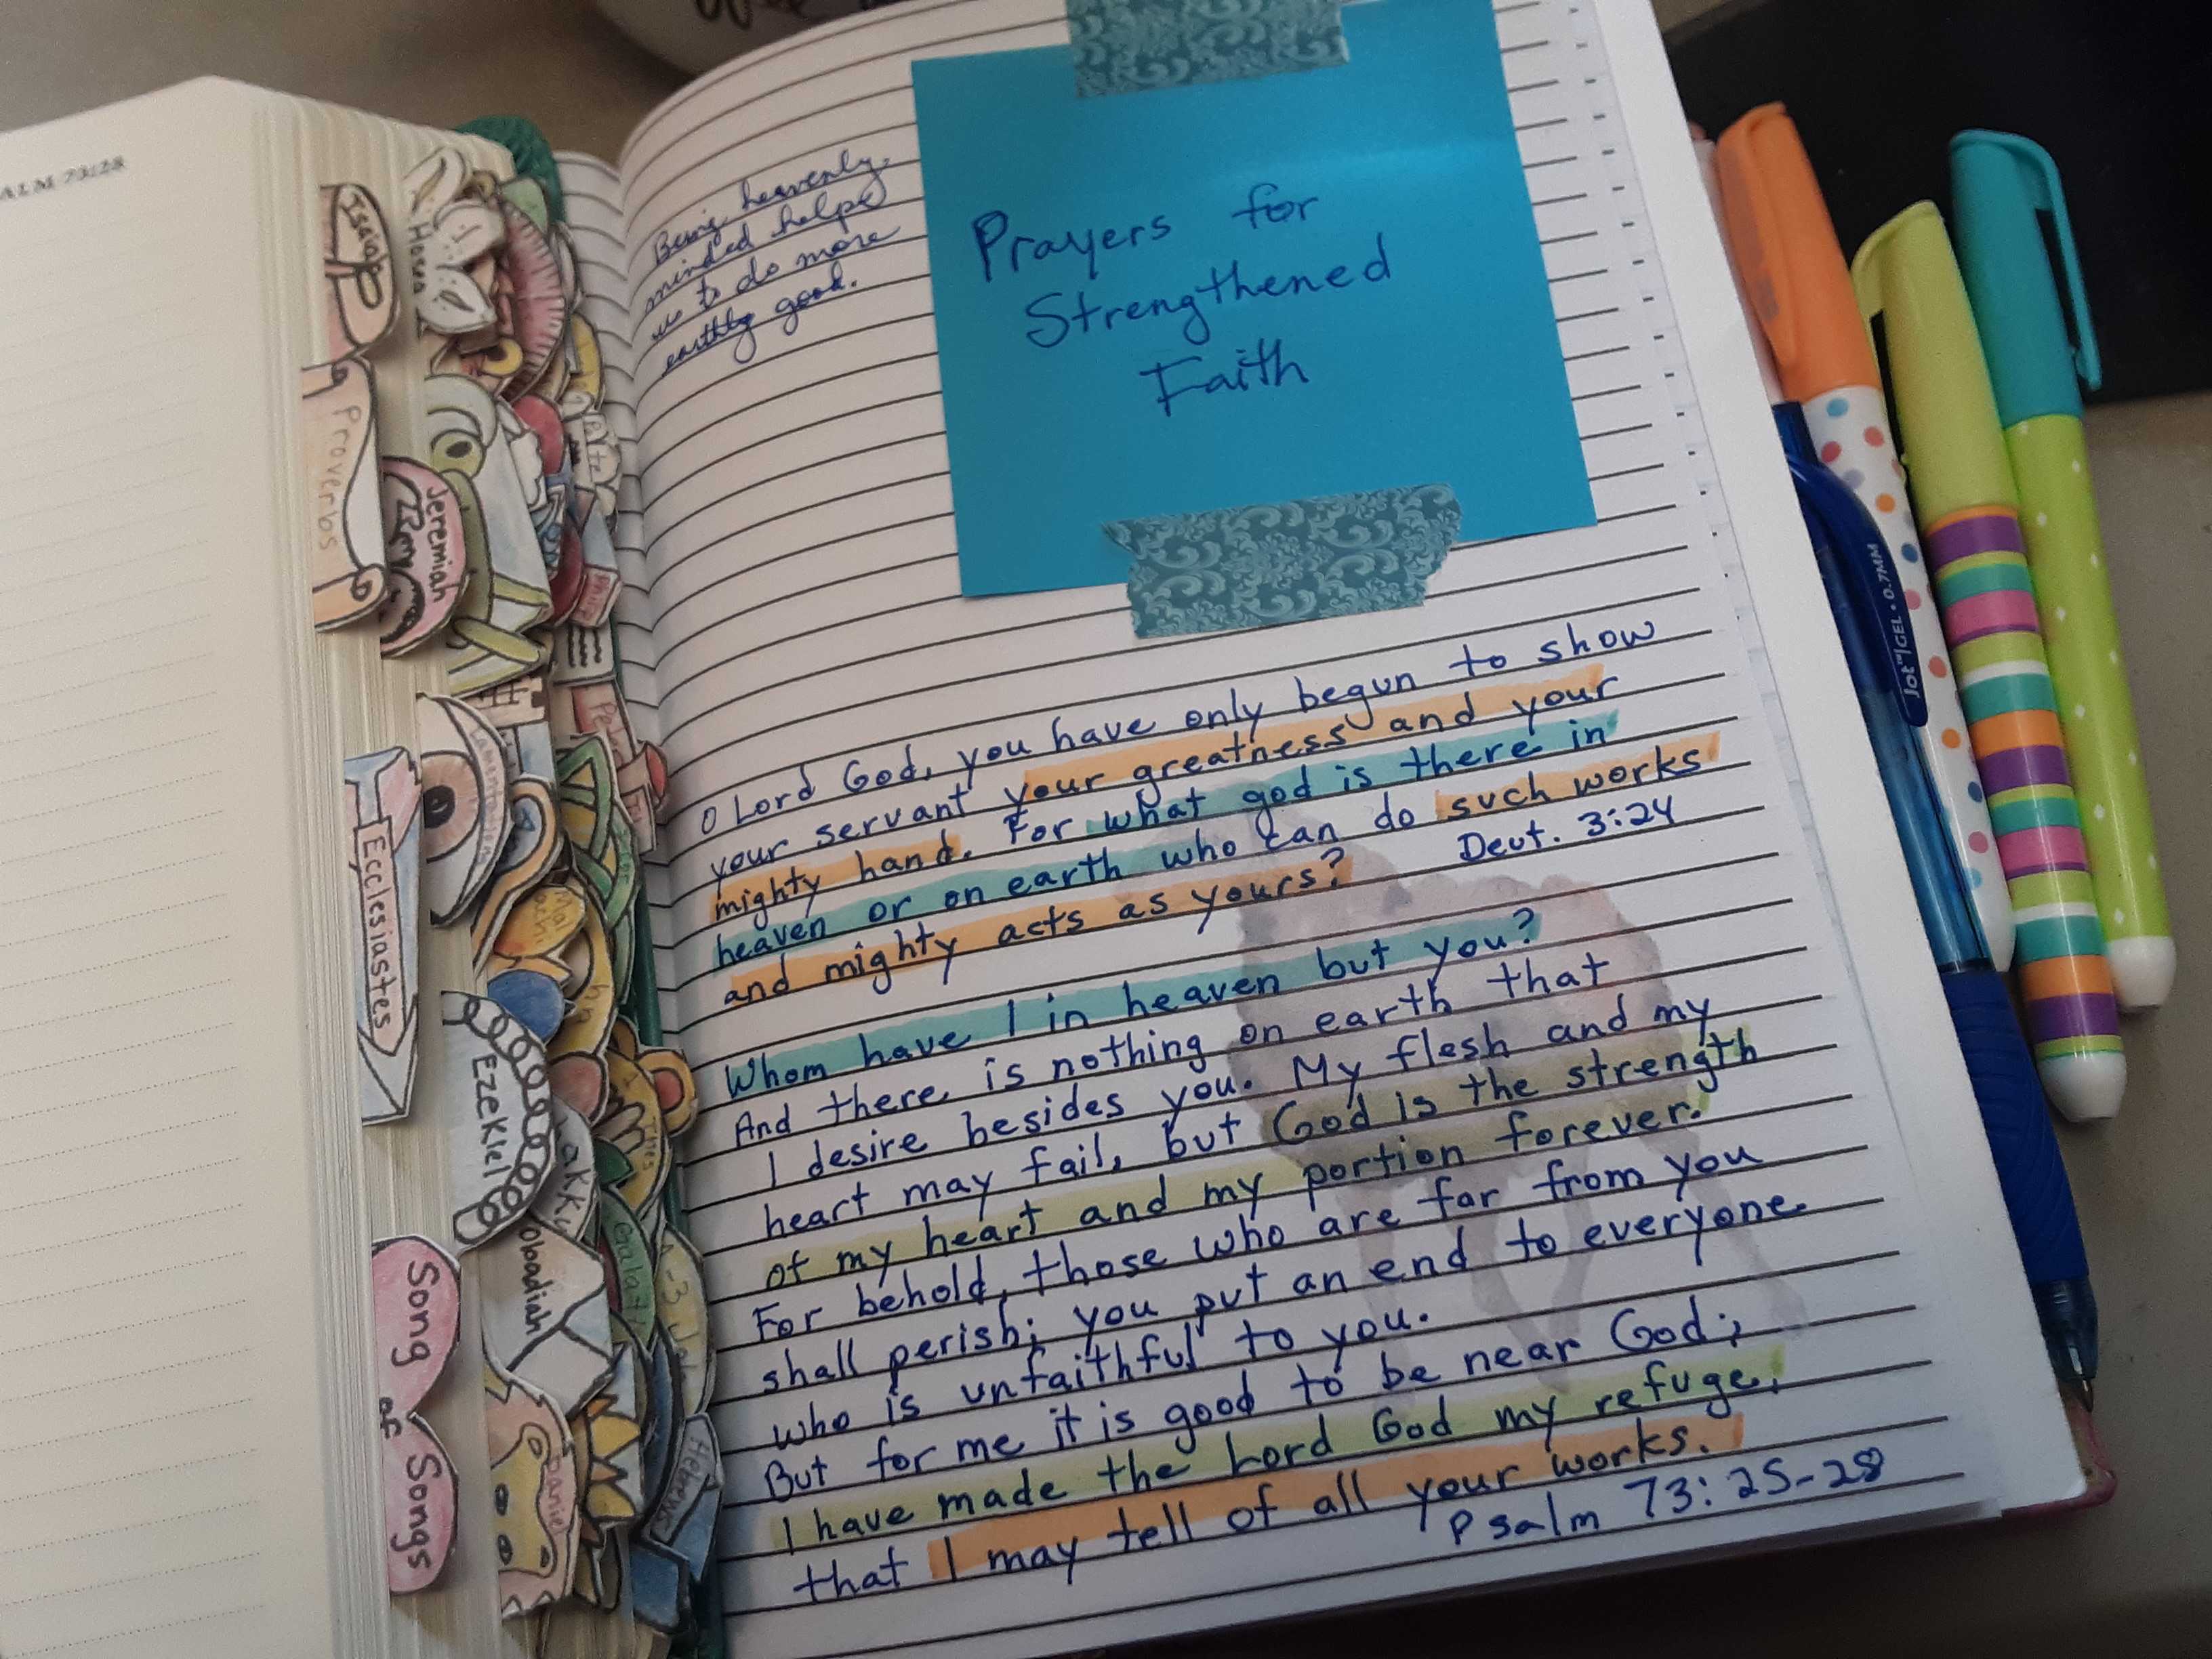 ALM 73:28
Isaiah
Hosea
Proverbs
Jeremiah
Lamentations
Ecclesiastes
Ezekiel
Obadiah
Song
of
Songs
Daniel
Galat
Hebrews
Being heavenly
minded helps
us to do more
earthly good.
Prayers for
Strengthened
Faith
O Lord God, you have only begun to show
your servant your greatness and your
mighty hand. For what god is there in
heaven or on earth who can do such works
and mighty acts as yours? Deut. 3:24
Whom have I in heaven but you?
And there is nothing on earth that
I desire besides you. My flesh and my
heart may fail, but God is the strength
of my heart and my portion forever.
For behold, those who are far from you
shall perish; you put an end to everyone
who is unfaithful to you.
But for me it is good to be near God;
I have made the Lord God my refuge,
that I may tell of all your works.
Psalm 73:25-28
Jot™|GEL • 0.7MM